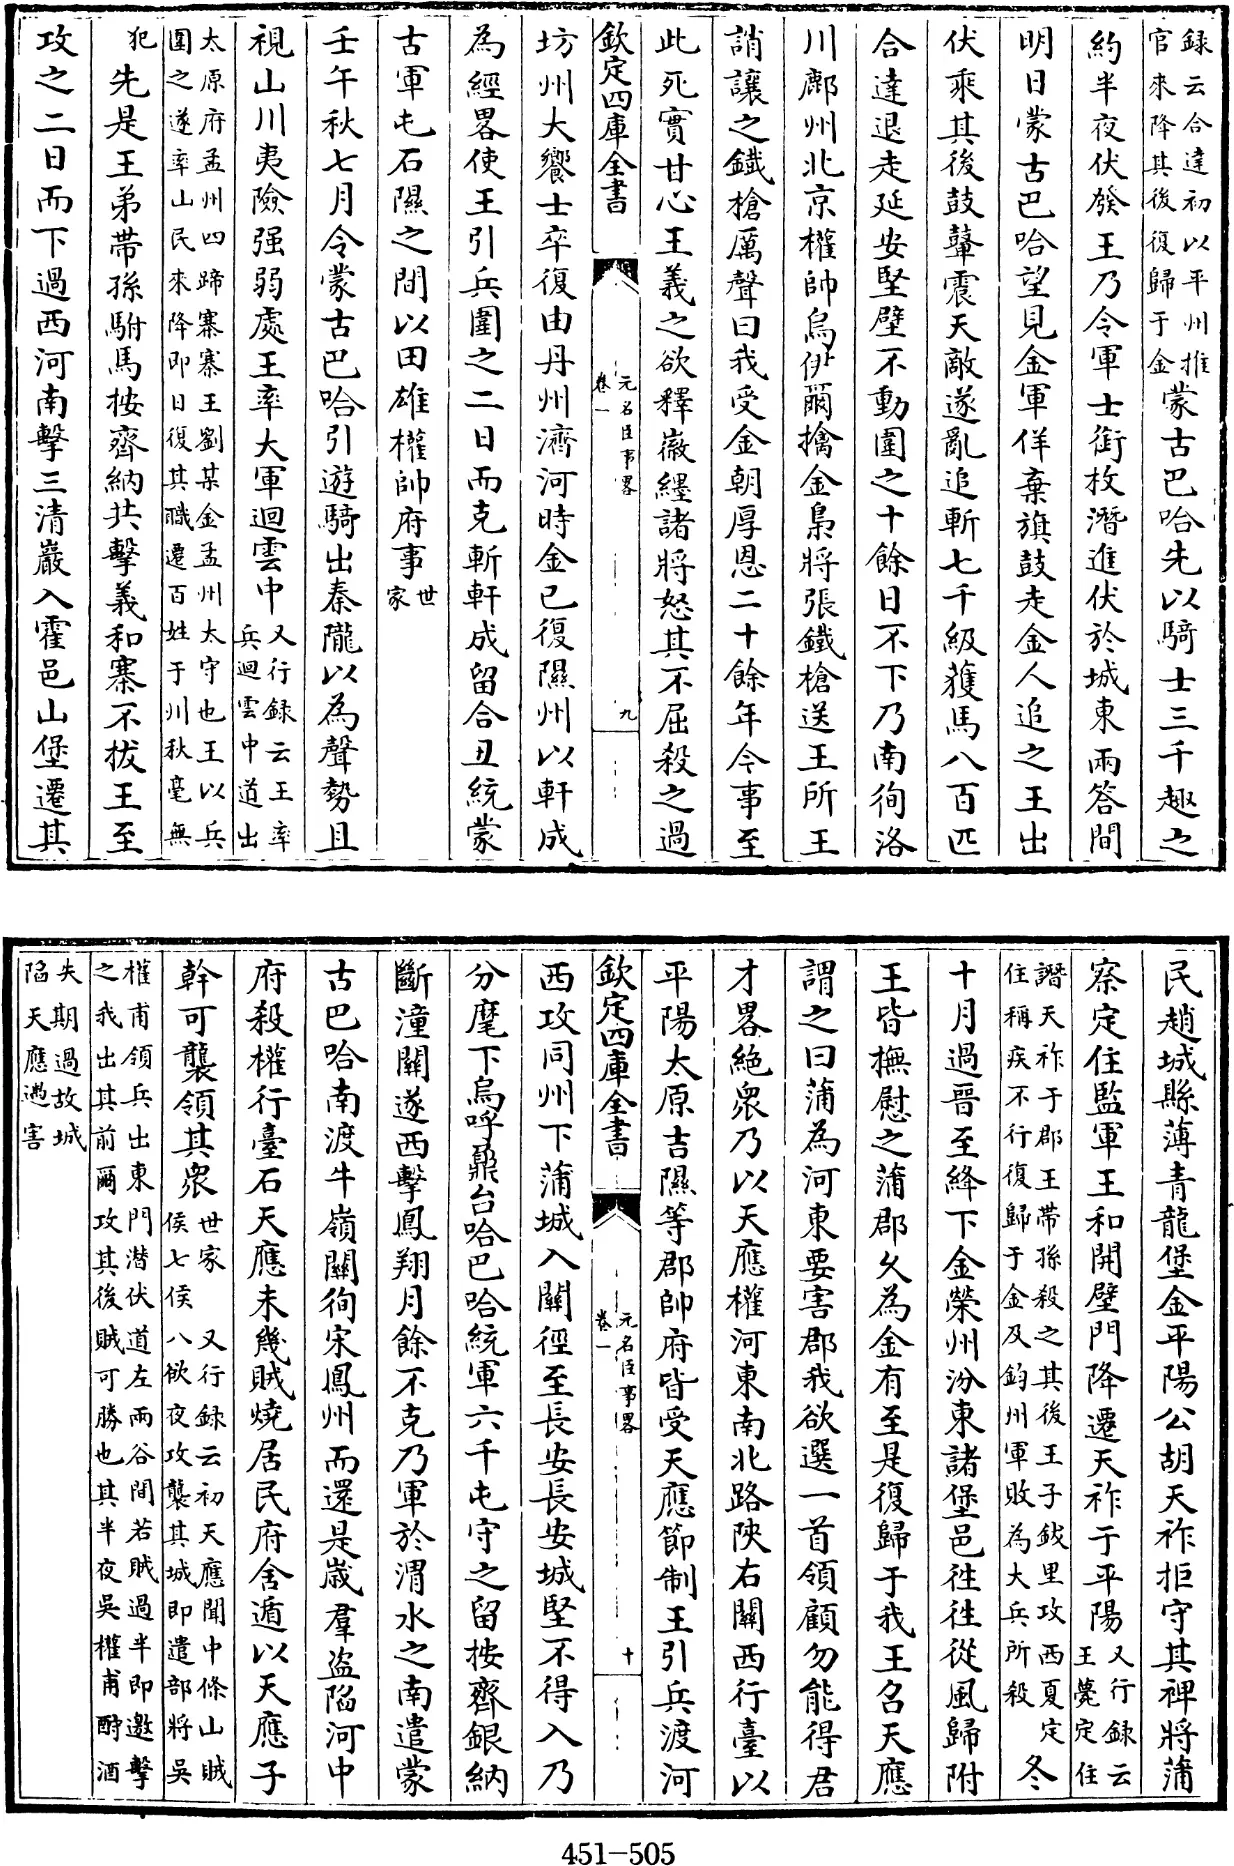 録云合達初以平州推
官來降其後復歸于金蒙古巴哈先以騎士三千趣之
約半夜伏發王乃令軍士銜枚潛進伏於城東兩答間
明日蒙古巴哈望見金軍佯棄旗鼓走金人追之王出
伏乘其後鼓鼙震天敵遂亂追斬七千級獲馬八百匹
合達退走延安堅壁不動圍之十餘日不下乃南徇洛
川鄜州北京權帥烏伊爾擒金梟將張鐵槍送王所王
誚讓之鐵槍厲聲曰我受金朝厚恩二十餘年今事至
此死實甘心王義之欲釋徽纆諸將怒其不屈殺之過
欽定四庫全書
元名臣事畧
卷一
九
坊州大饗士卒復由丹州濟河時金已復隰州以軒成
為經畧使王引兵圍之二日而克斬軒成留合丑統蒙
古軍屯石隰之間以田雄權帥府事世
家
壬午秋七月令蒙古巴哈引遊騎出秦隴以為聲勢且
視山川夷險强弱處王率大軍迴雲中又行録云王率
兵迴雲中道出
太原府孟州四蹄寨寨王劉某金孟州太守也王以兵
圍之遂率山民來降即日復其職還百姓于川秋毫無
犯先是王弟帶孫駙馬按齊納共擊義和寨不拔王至
攻之二日而下過西河南擊三清巖入霍邑山堡遷其
民趙城縣薄青龍堡金平陽公胡天祚拒守其裨將蒲
察定住監軍王和開壁門降遷天祚于平陽又行録云
王薨定住
譖天祚于郡王帶孫殺之其後王子敂里攻西夏定
住稱疾不行復歸于金及鈞州軍敗為大兵所殺冬
十月過晉至絳下金榮州汾東諸堡邑往往從風歸附
王皆撫慰之蒲郡久為金有至是復歸于我王召天應
謂之曰蒲為河東要害郡我欲選一首領顧勿能得君
才畧絶衆乃以天應權河東南北路陜右關西行臺以
平陽太原吉隰等郡帥府皆受天應節制王引兵渡河
欽定四庫全書
元名臣事畧
卷一
十
西攻同州下蒲城入關徑至長安長安城堅不得入乃
分麾下烏呼鼐台哈巴哈統軍六千屯守之留按齊銀納
斷潼關遂西擊鳳翔月餘不克乃軍於渭水之南遣蒙
古巴哈南渡牛嶺關徇宋鳳州而還是歲羣盜陷河中
府殺權行臺石天應未幾賊燒居民府舍遁以天應子
幹可襲領其衆世家 又行録云初天應聞中條山賊
侯七侯八欲夜攻襲其城即遣部將吳
權甫領兵出東門潛伏道左兩谷間若賊過半即邀擊
之我出其前爾攻其後賊可勝也其半夜吳權甫酣酒
失期過故城
陷天應遇害
451-505